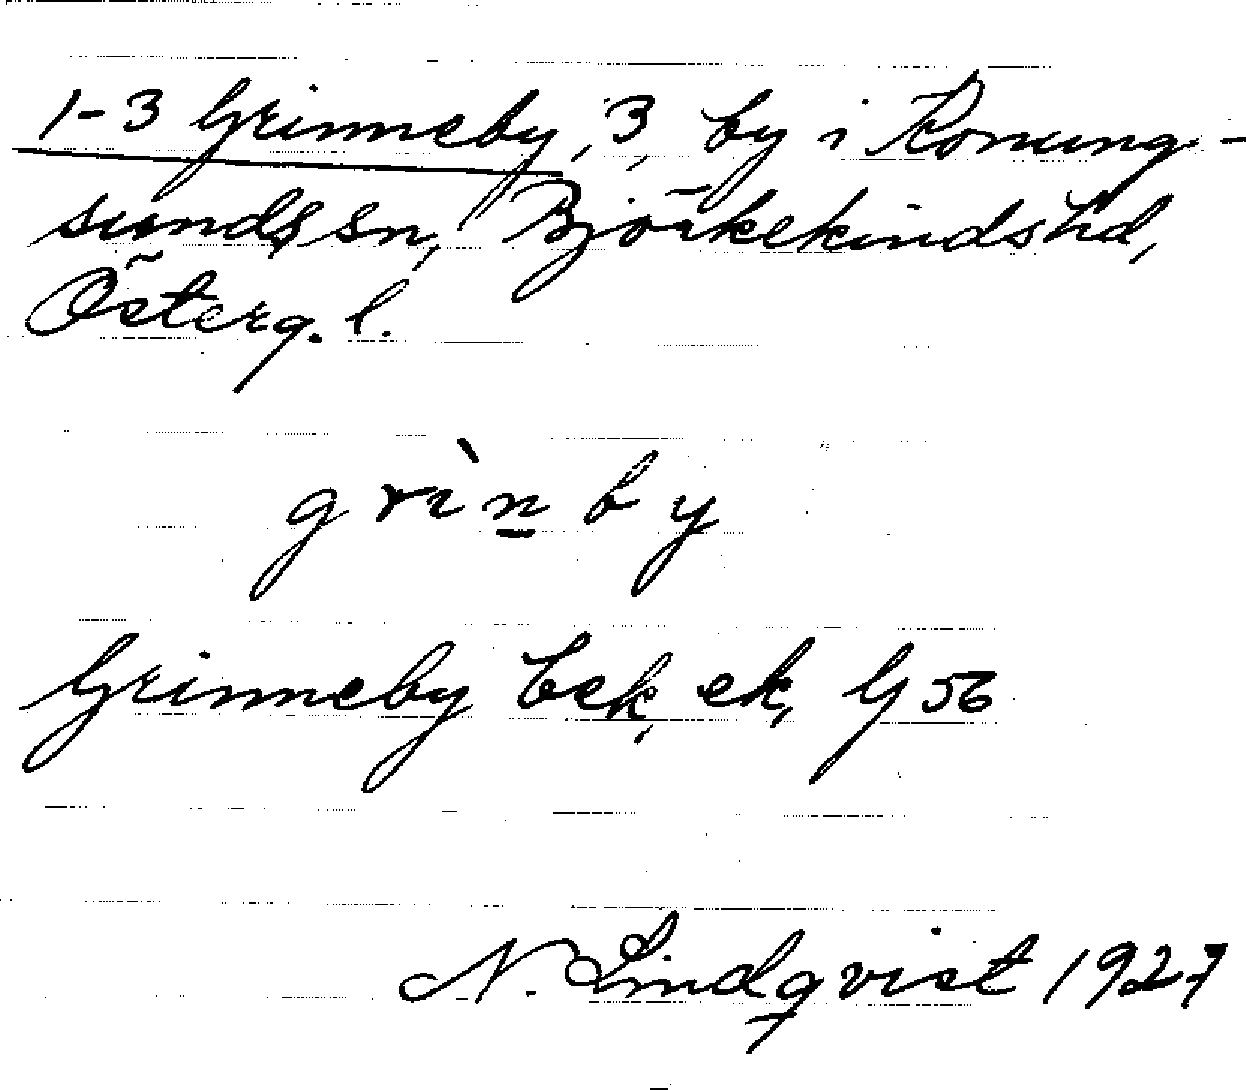 1-3 Grinneby, 3, by i Konung-
sunds sn, Björkekinds hd,
Österg. l.
grìn̲by
Grinneby Cek, ek, G 56
N. Lindqvist 1927